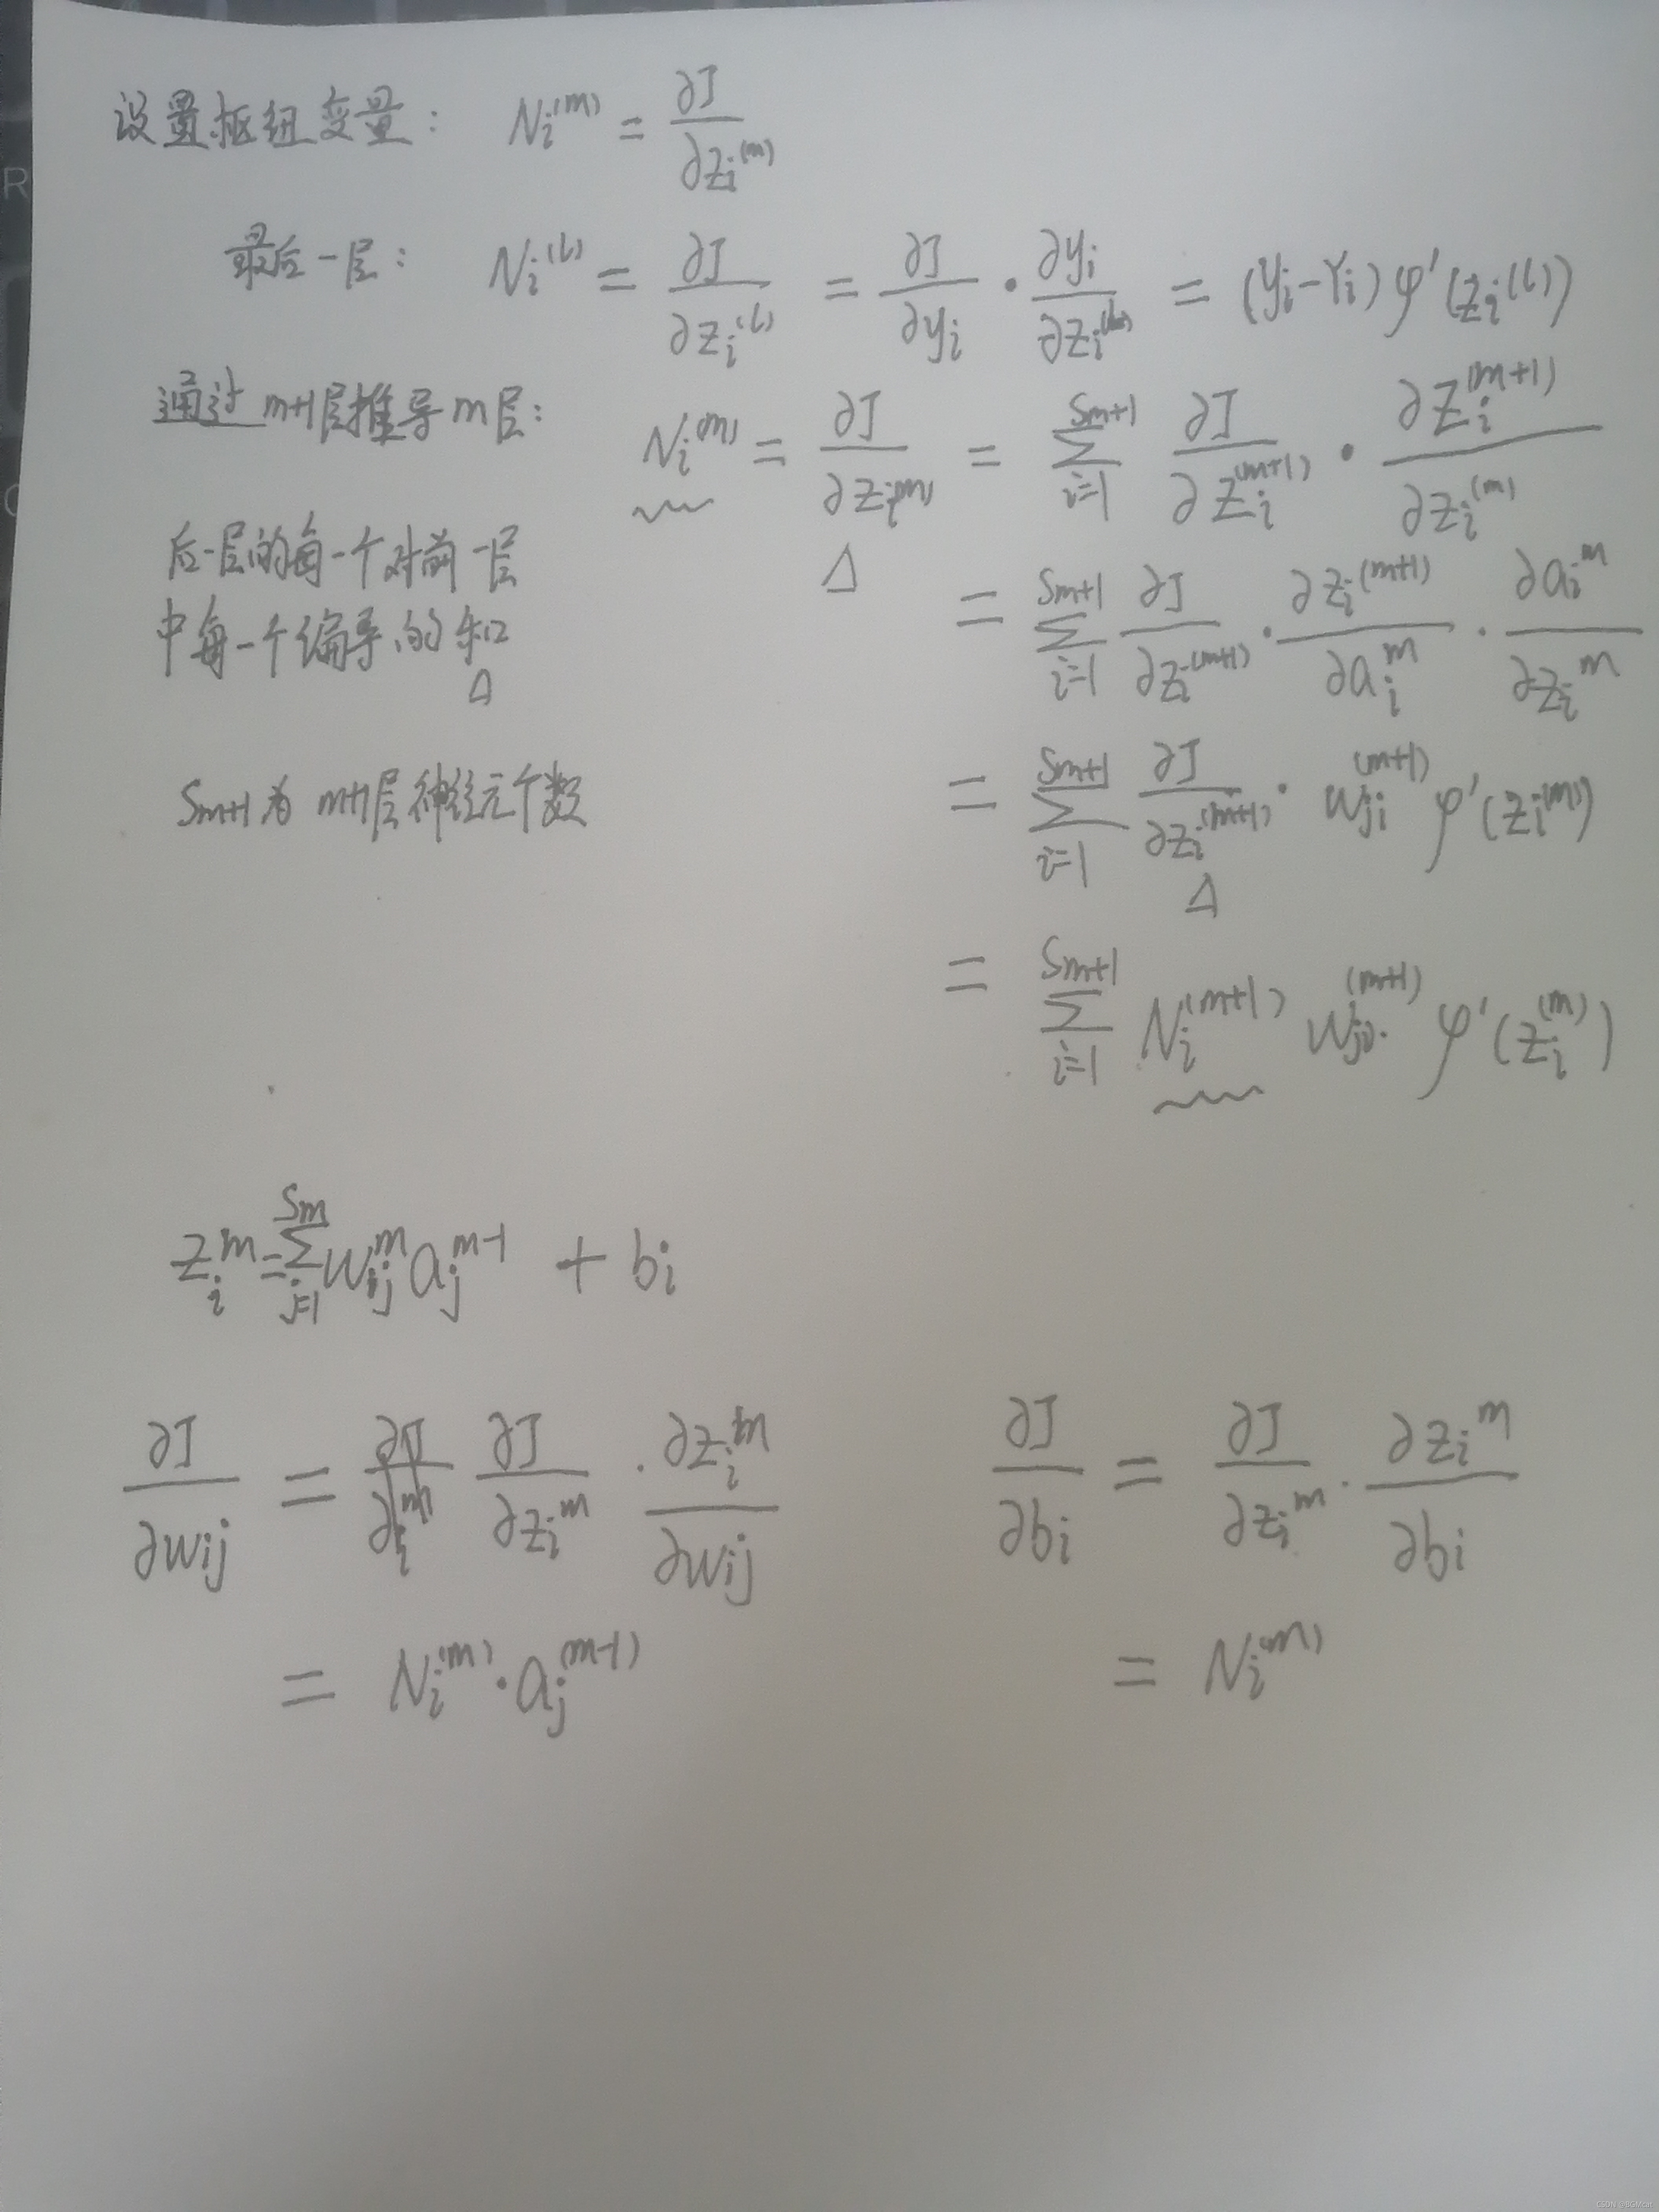 设置枢纽变量： Nᵢ⁽ᵐ⁾ = ∂J/∂zᵢ⁽ᵐ⁾
最后一层： Nᵢ⁽ˡ⁾ = ∂J/∂zᵢ⁽ˡ⁾ = ∂J/∂yᵢ · ∂yᵢ/∂zᵢ⁽ˡ⁾ = (yᵢ-Yᵢ) φ'(zᵢ⁽ˡ⁾)
通过m+1层推导m层： Nᵢ⁽ᵐ⁾ = ∂J/∂zᵢ⁽ᵐ⁾ = Σ_{i=1}^{Sm+1} ∂J/∂zᵢ⁽ᵐ⁺¹⁾ · ∂zᵢ⁽ᵐ⁺¹⁾/∂zᵢ⁽ᵐ⁾
Δ
后一层的每一个对前一层
= Σ_{i=1}^{Sm+1} ∂J/∂zᵢ⁽ᵐ⁺¹⁾ · ∂zᵢ⁽ᵐ⁺¹⁾/∂aᵢᵐ · ∂aᵢᵐ/∂zᵢᵐ
中每一个偏导的和
Δ
Sm+1为m+1层神经元个数
= Σ_{i=1}^{Sm+1} ∂J/∂zᵢ⁽ᵐ⁺¹⁾ · wⱼᵢ⁽ᵐ⁺¹⁾ φ'(zᵢ⁽ᵐ⁾)
Δ
= Σ_{i=1}^{Sm+1} Nᵢ⁽ᵐ⁺¹⁾ wⱼᵢ⁽ᵐ⁺¹⁾ φ'(zᵢ⁽ᵐ⁾)
zᵢᵐ = Σ_{j=1}^{Sm} wᵢⱼᵐ aⱼᵐ⁻¹ + bᵢ
∂J/∂wij = ∂J/∂zᵢᵐ · ∂zᵢᵐ/∂wij
∂J/∂bi = ∂J/∂zᵢᵐ · ∂zᵢᵐ/∂bi
= Nᵢ⁽ᵐ⁾ · aⱼ⁽ᵐ⁻¹⁾
= Nᵢ⁽ᵐ⁾
R
CSDN @BGMcat